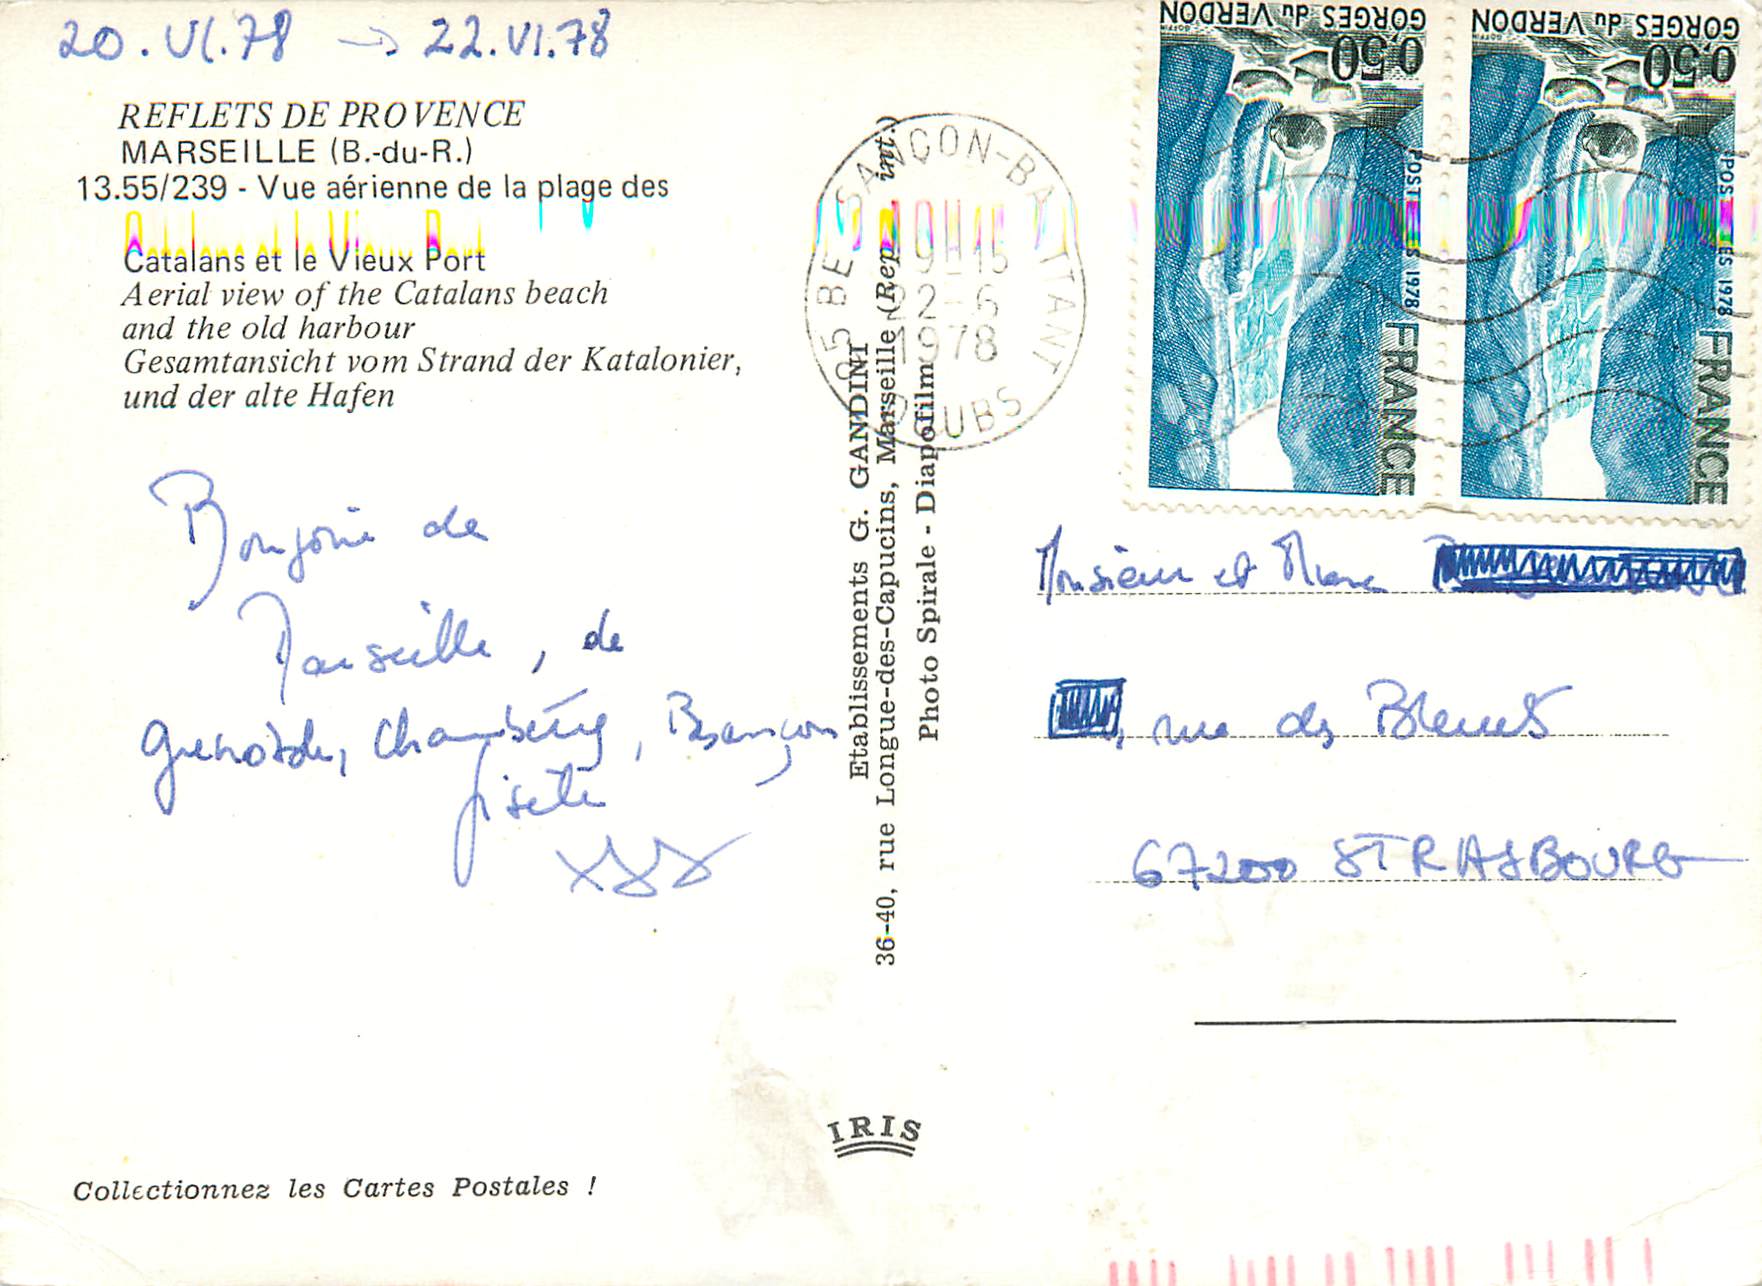 20.VI.78 → 22.VI.78
REFLETS DE PROVENCE
MARSEILLE (B.-du-R.)
13.55/239 - Vue aérienne de la plage des
Catalans et le Vieux Port
Aerial view of the Catalans beach
and the old harbour
Gesamtansicht vom Strand der Katalonier,
und der alte Hafen
de
Marseille, de
Grenoble, Chambéry, Besançon
Gisèle
Collectionnez les Cartes Postales !
Etablissements G. GANDINI
36-40, rue Longue-des-Capucins, Marseille (Rep. int.)
Photo Spirale - Diapofilm
IRIS
25 BESANCON-BATTANT
DOUBS
19H15
22-6
1978
GORGES du VERDON
0,50
POSTES 1978
FRANCE
GORGES du VERDON
0,50
POSTES 1978
FRANCE
Monsieur et Mme
, rue des Bleuets
67200 STRASBOURG